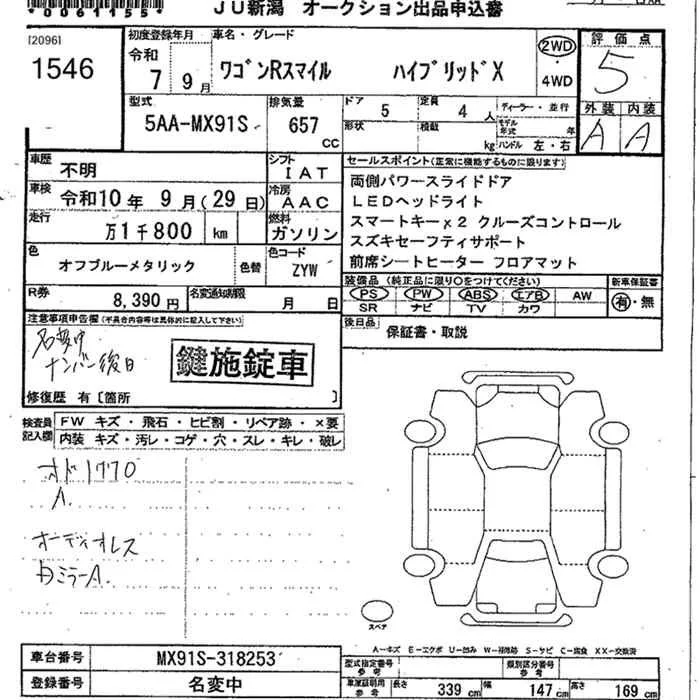 *0061155*
JU新潟 オークション出品申込書
[2096]
1546
初度登録年月
令和
7 9月
車名・グレード
ワゴンRスマイル ハイブリッドX
2WD
4WD
評価点
5
型式
5AA-MX91S
排気量
657
cc
ドア
5
定員
4人
形状
積載
kg
ディーラー・並行
モデル年式
年
ハンドル 左・右
外装 内装
A A
車歴
不明
シフト
IAT
車検
令和10年 9月(29日)
冷房
AAC
走行
万1千800 km
燃料
ガソリン
色
オフブルーメタリック
色替
色コード
ZYW
R券
8,390円
名変通知期限
月 日
セールスポイント(正常に機能するものに限ります)
両側パワースライドドア
LEDヘッドライト
スマートキーx2 クルーズコントロール
スズキセーフティサポート
前席シートヒーター フロアマット
装備品 (純正品に限り○をつけてください)
PS PW ABS エアB AW
SR ナビ TV カワ
新車保証書
有・無
後日品
保証書・取説
注意事項申告欄(不具合内容等は具体的に記入して下さい)
名変中
ナンバー後日
鍵施錠車
修復歴 有〔箇所 〕
検査員
記入欄
FW キズ・飛石・ヒビ割・リペア跡・×要
内装 キズ・汚レ・コゲ・穴・スレ・キレ・破レ
オド1770
A.
オーディオレス
内ミラーA.
スペア
A-キズ E-エクボ U-凹み W-補修跡 S-サビ C-腐食 XX-交換済
車台番号
MX91S-318253
登録番号
名変中
型式指定番号
参考
類別区分番号
参考
車庫証明用
参考
長さ
339 cm
幅
147 cm
高さ
169 cm